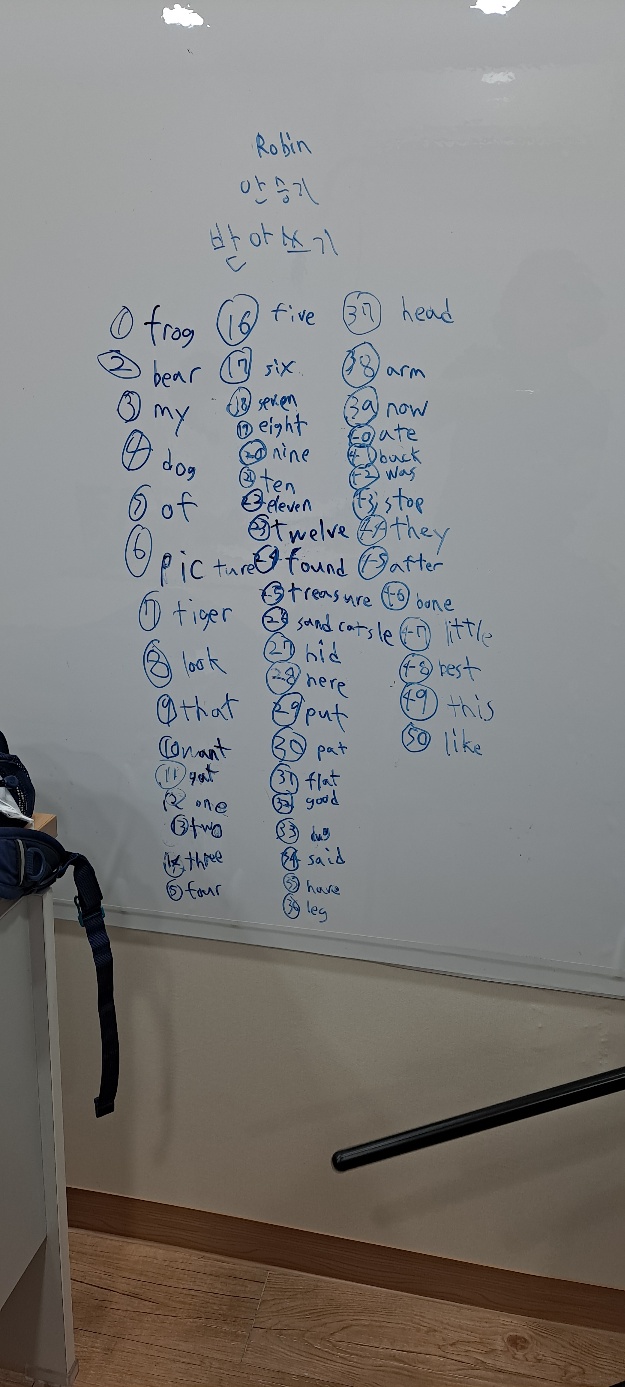 Robin
안승기
받아쓰기
① frog
② bear
③ my
④ dog
⑤ of
⑥ picture
⑦ tiger
⑧ look
⑨ that
⑩ want
⑪
⑫ one
⑬ two
⑭ three
⑮ four
⑯ five
⑰ six
⑱ seven
⑲ eight
⑳ nine
㉑ ten
㉒ eleven
㉓ twelve
㉔ found
㉕ treasure
㉖ sand catsle
㉗ hid
㉘ here
㉙ put
㉚ pat
㉛ flat
㉜ good
㉝
㉞ said
㉟ have
㊱ leg
㊲ head
㊳ arm
㊴ now
㊵ ate
㊶ back
㊷ was
㊸ stop
㊹ they
㊺ after
㊻ bone
㊼ little
㊽ best
㊾ this
㊿ like